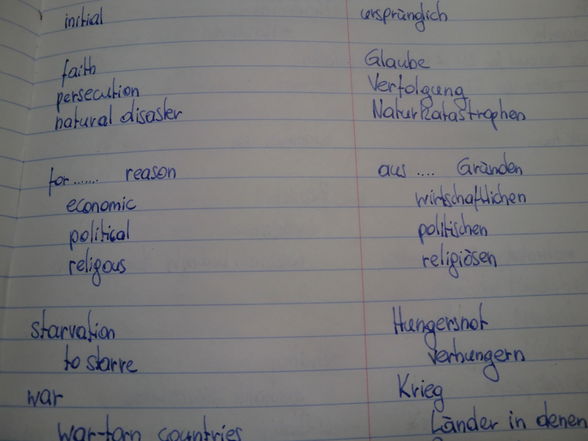 initial ursprünglich
faith Glaube
persecution Verfolgung
natural disaster Naturkatastrophen
for....... reason aus .... Gründen
economic wirtschaftlichen
political politischen
religous religiösen
starvation Hungersnot
to starve verhungern
war Krieg
war-torn countries Länder in denen